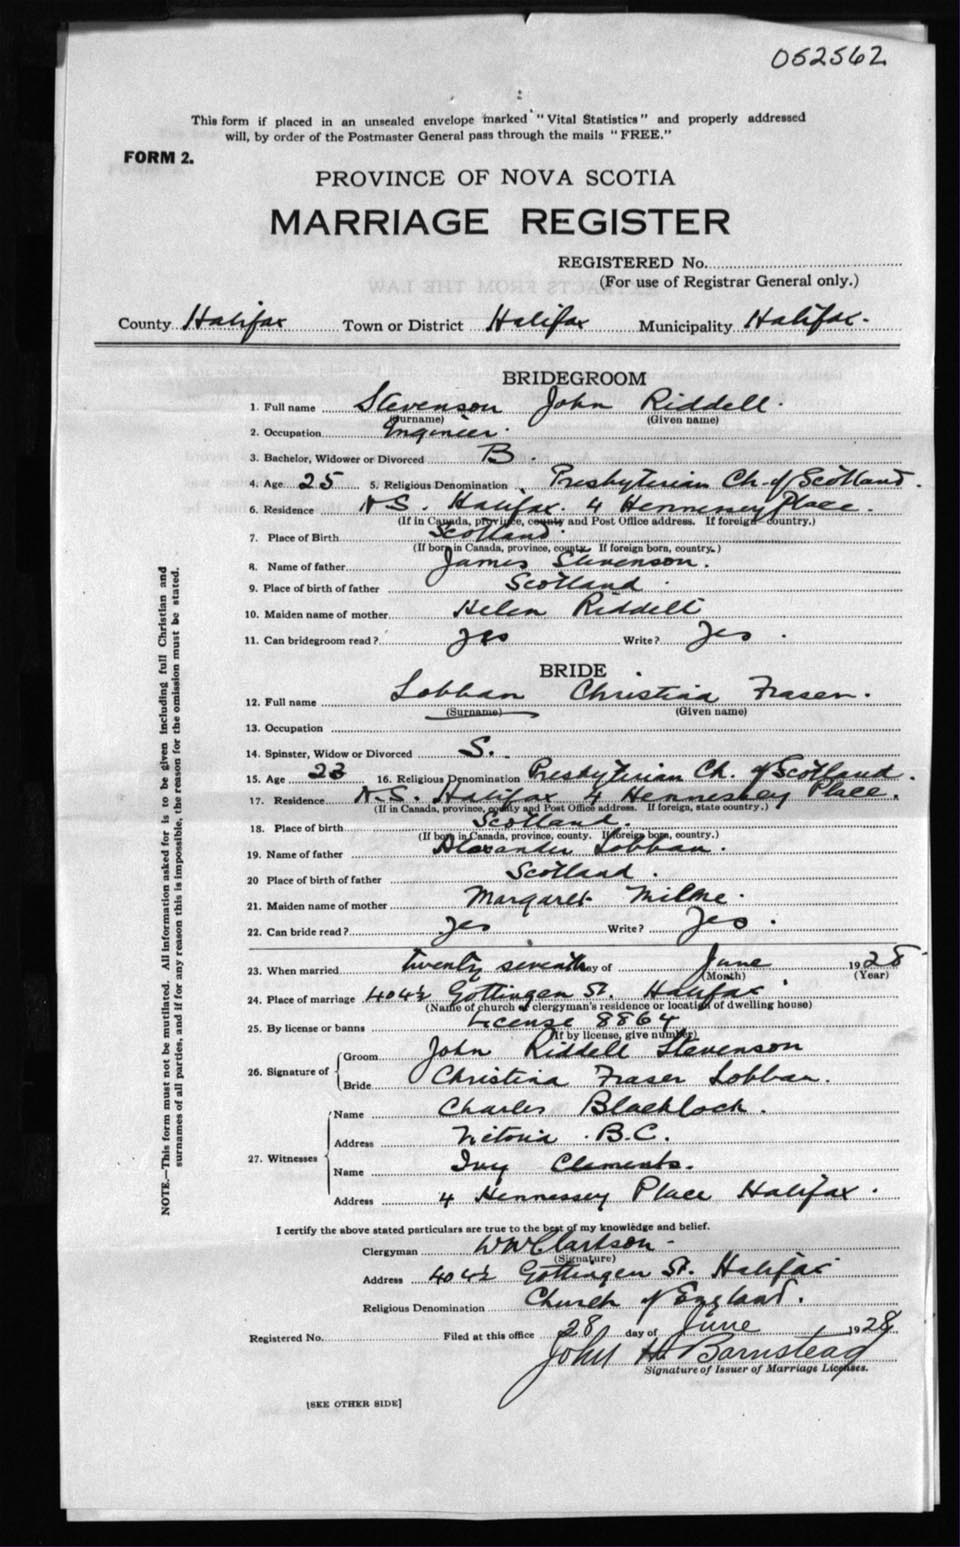 052562
This form if placed in an unsealed envelope marked "Vital Statistics" and properly addressed
will, by order of the Postmaster General pass through the mails "FREE."
FORM 2.
PROVINCE OF NOVA SCOTIA
MARRIAGE REGISTER
REGISTERED No.
(For use of Registrar General only.)
County Halifax Town or District Halifax Municipality Halifax.
BRIDEGROOM
1. Full name Stevenson John Riddell.
(Surname) (Given name)
2. Occupation Engineer.
3. Bachelor, Widower or Divorced B.
4. Age 25 5. Religious Denomination Presbyterian Ch. of Scotland.
6. Residence N.S. Halifax. 4 Hennessey Place.
(If in Canada, province, county and Post Office address. If foreign country.)
7. Place of Birth Scotland.
(If born in Canada, province, county. If foreign born, country.)
8. Name of father James Stevenson.
9. Place of birth of father Scotland.
10. Maiden name of mother Helen Riddell
11. Can bridegroom read? yes Write? Yes.
BRIDE
12. Full name Lobban Christina Fraser.
(Surname) (Given name)
13. Occupation
14. Spinster, Widow or Divorced S.
15. Age 23 16. Religious Denomination Presbyterian Ch. of Scotland.
17. Residence N.S. Halifax 4 Hennessey Place.
(If in Canada, province, county and Post Office address. If foreign, state country.)
18. Place of birth Scotland.
(If born in Canada, province, county. If foreign born, country.)
19. Name of father Alexander Lobban.
20 Place of birth of father Scotland.
21. Maiden name of mother Margaret Milne.
22. Can bride read? yes Write? Yes.
23. When married twenty seventh day of June 1928
(Month) (Year)
24. Place of marriage 404½ Gottingen St. Halifax.
(Name of church or clergyman's residence or location of dwelling house)
25. By license or banns License 8864
(If by license, give number)
26. Signature of Groom John Riddell Stevenson
Bride Christina Fraser Lobban.
27. Witnesses Name Charles Blacklock.
Address Victoria. B.C.
Name Ivy Clements.
Address 4 Hennessey Place Halifax.
I certify the above stated particulars are true to the best of my knowledge and belief.
Clergyman WW Clarkson.
(Signature)
Address 404½ Gottingen St. Halifax
Religious Denomination Church of England.
Registered No. Filed at this office 28 day of June 1928
John H Barnstead
Signature of Issuer of Marriage Licenses.
[SEE OTHER SIDE]
NOTE.—This form must not be mutilated. All information asked for is to be given including full Christian and
surnames of all parties, and if for any reason this is impossible, the reason for the omission must be stated.